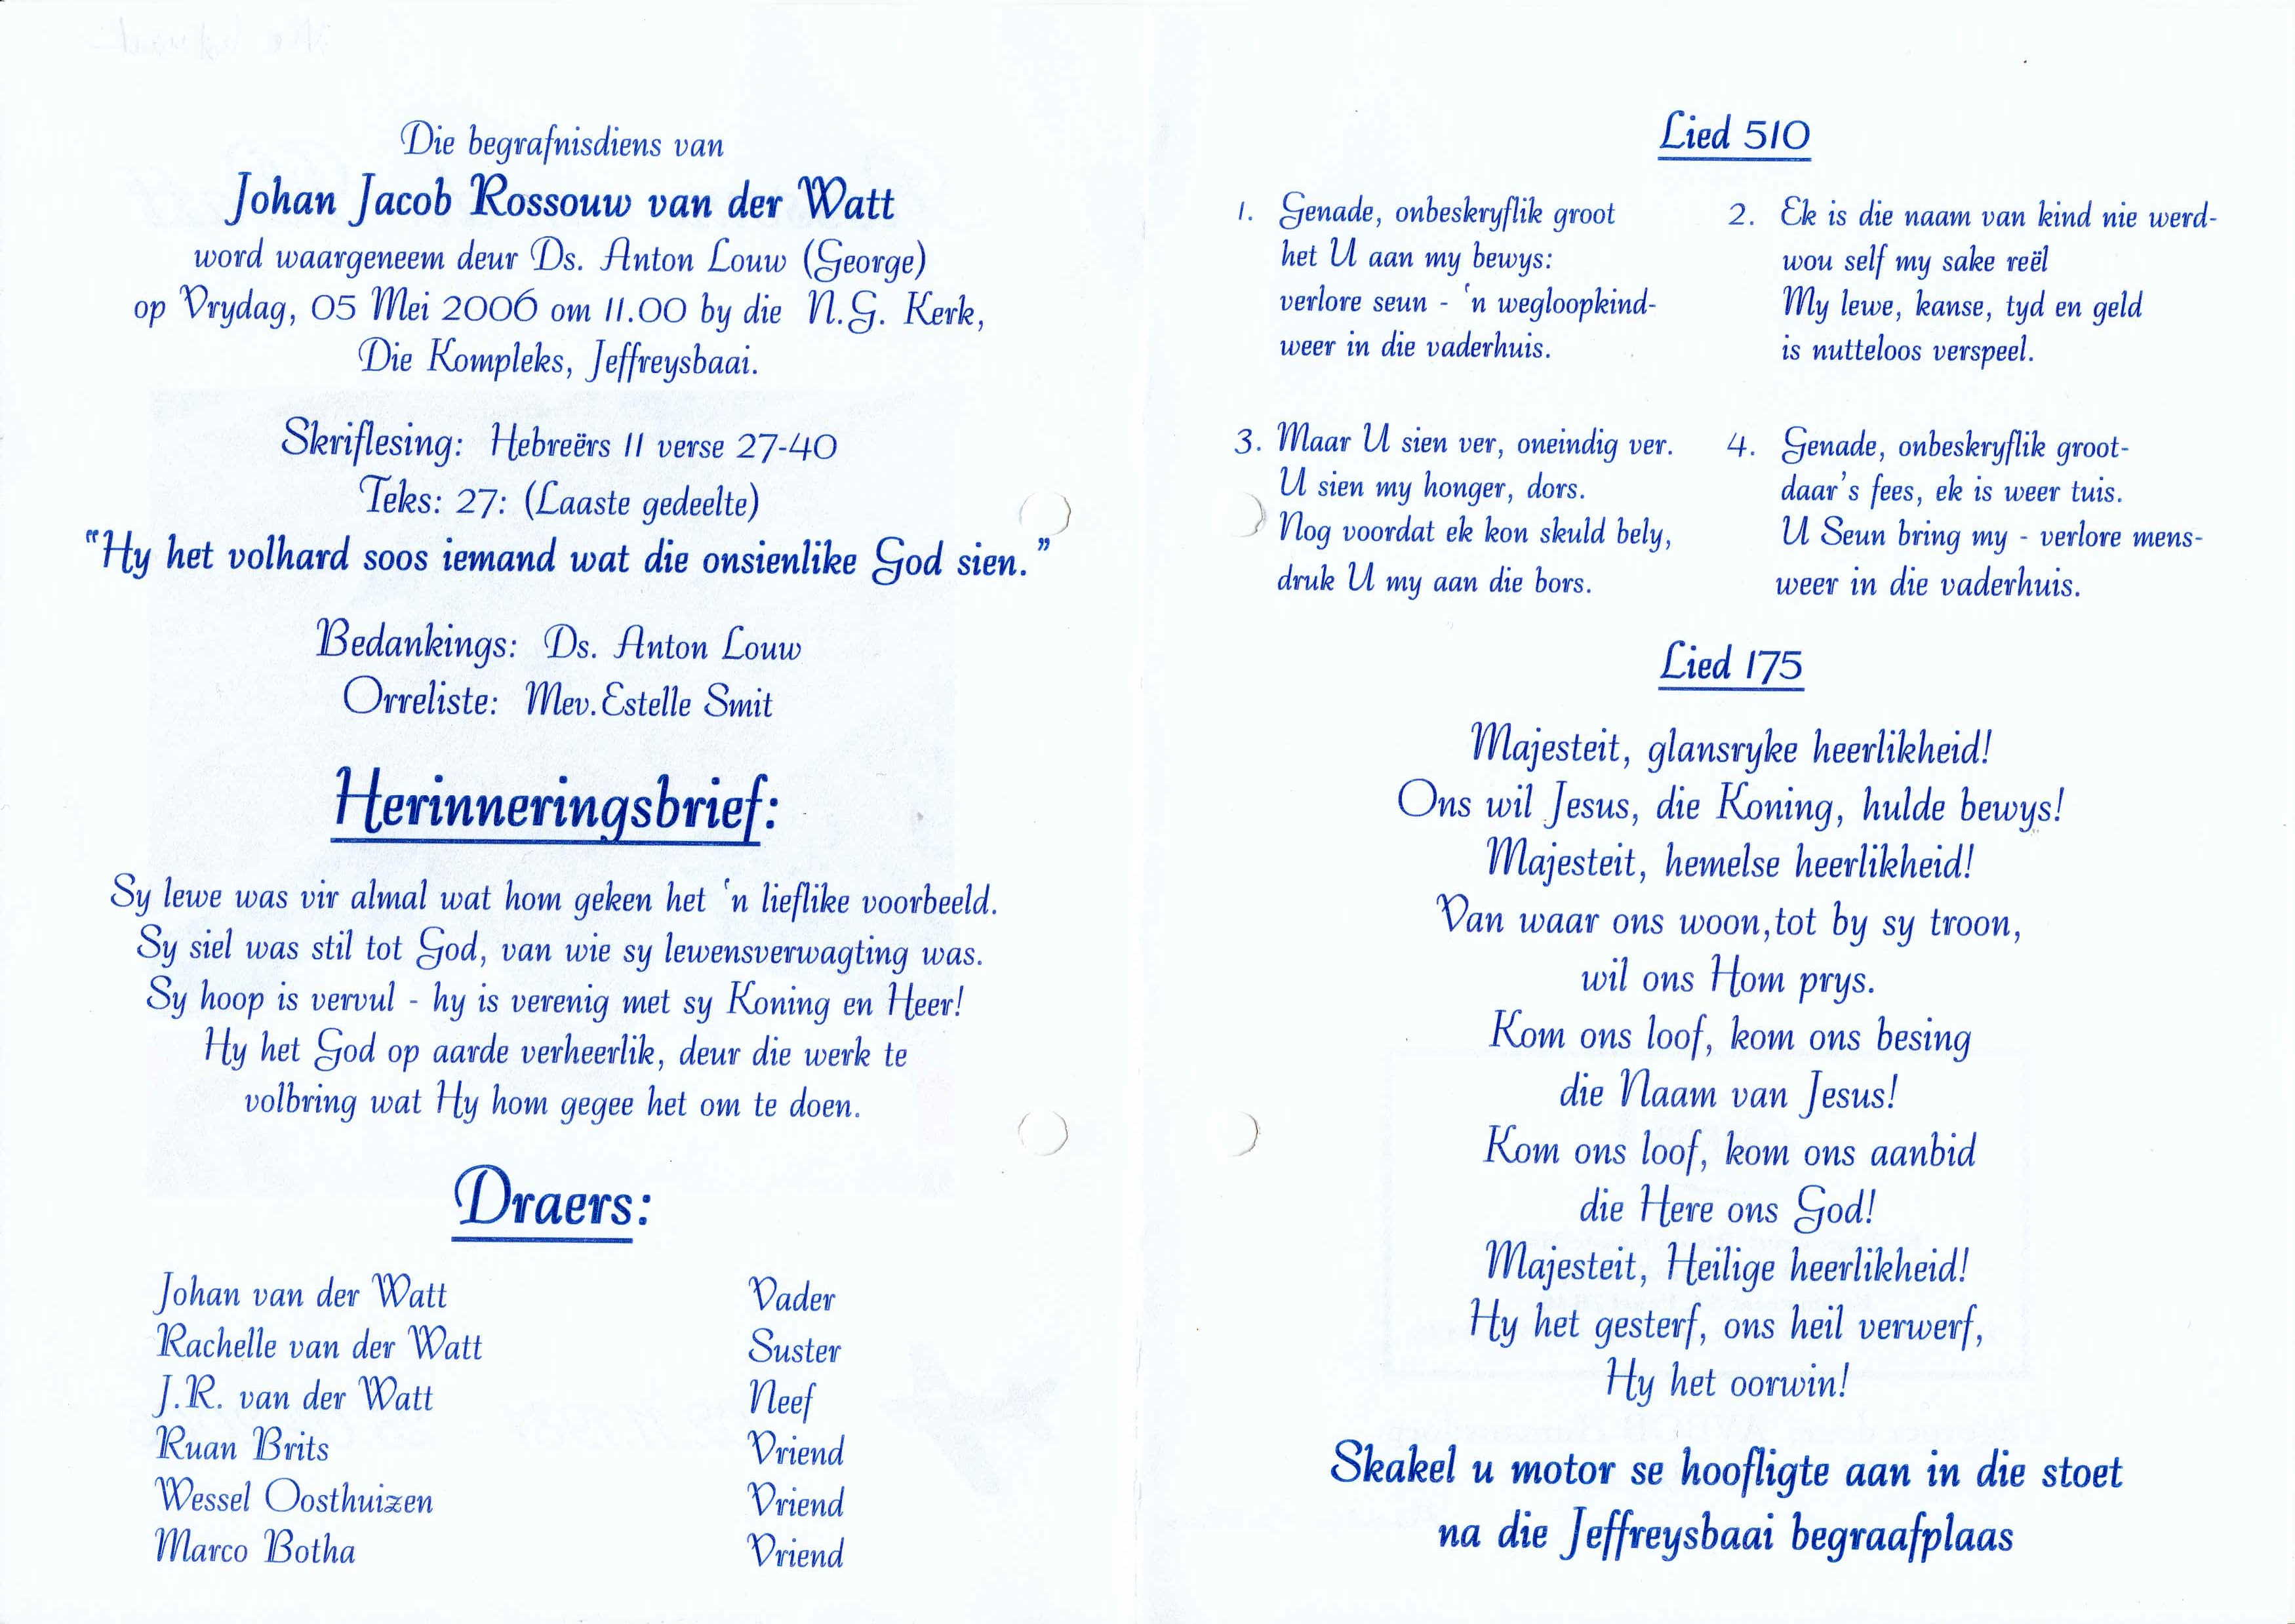 Die begrafnisdiens van
Johan Jacob Rossouw van der Watt
word waargeneem deur Ds. Anton Louw (George)
op Vrydag, 05 Mei 2006 om 11.00 by die N.G. Kerk,
Die Kompleks, Jeffreysbaai.
Skriflesing: Hebreërs 11 verse 27-40
Teks: 27: (Laaste gedeelte)
"Hy het volhard soos iemand wat die onsienlike God sien."
Bedankings: Ds. Anton Louw
Orreliste: Mev.Estelle Smit
Herinneringsbrief:
Sy lewe was vir almal wat hom geken het 'n lieflike voorbeeld.
Sy siel was stil tot God, van wie sy lewensverwagting was.
Sy hoop is vervul - hy is verenig met sy Koning en Heer!
Hy het God op aarde verheerlik, deur die werk te
volbring wat Hy hom gegee het om te doen.
Draers:
Johan van der Watt Vader
Rachelle van der Watt Suster
J.R. van der Watt Neef
Ruan Brits Vriend
Wessel Oosthuizen Vriend
Marco Botha Vriend
Lied 510
1. Genade, onbeskryflik groot
het U aan my bewys:
verlore seun - 'n wegloopkind-
weer in die vaderhuis.
2. Ek is die naam van kind nie werd-
wou self my sake reël
My lewe, kanse, tyd en geld
is nutteloos verspeel.
3. Maar U sien ver, oneindig ver.
U sien my honger, dors.
Nog voordat ek kon skuld bely,
druk U my aan die bors.
4. Genade, onbeskryflik groot-
daar's fees, ek is weer tuis.
U Seun bring my - verlore mens-
weer in die vaderhuis.
Lied 175
Majesteit, glansryke heerlikheid!
Ons wil Jesus, die Koning, hulde bewys!
Majesteit, hemelse heerlikheid!
Van waar ons woon,tot by sy troon,
wil ons Hom prys.
Kom ons loof, kom ons besing
die Naam van Jesus!
Kom ons loof, kom ons aanbid
die Here ons God!
Majesteit, Heilige heerlikheid!
Hy het gesterf, ons heil verwerf,
Hy het oorwin!
Skakel u motor se hoofligte aan in die stoet
na die Jeffreysbaai begraafplaas